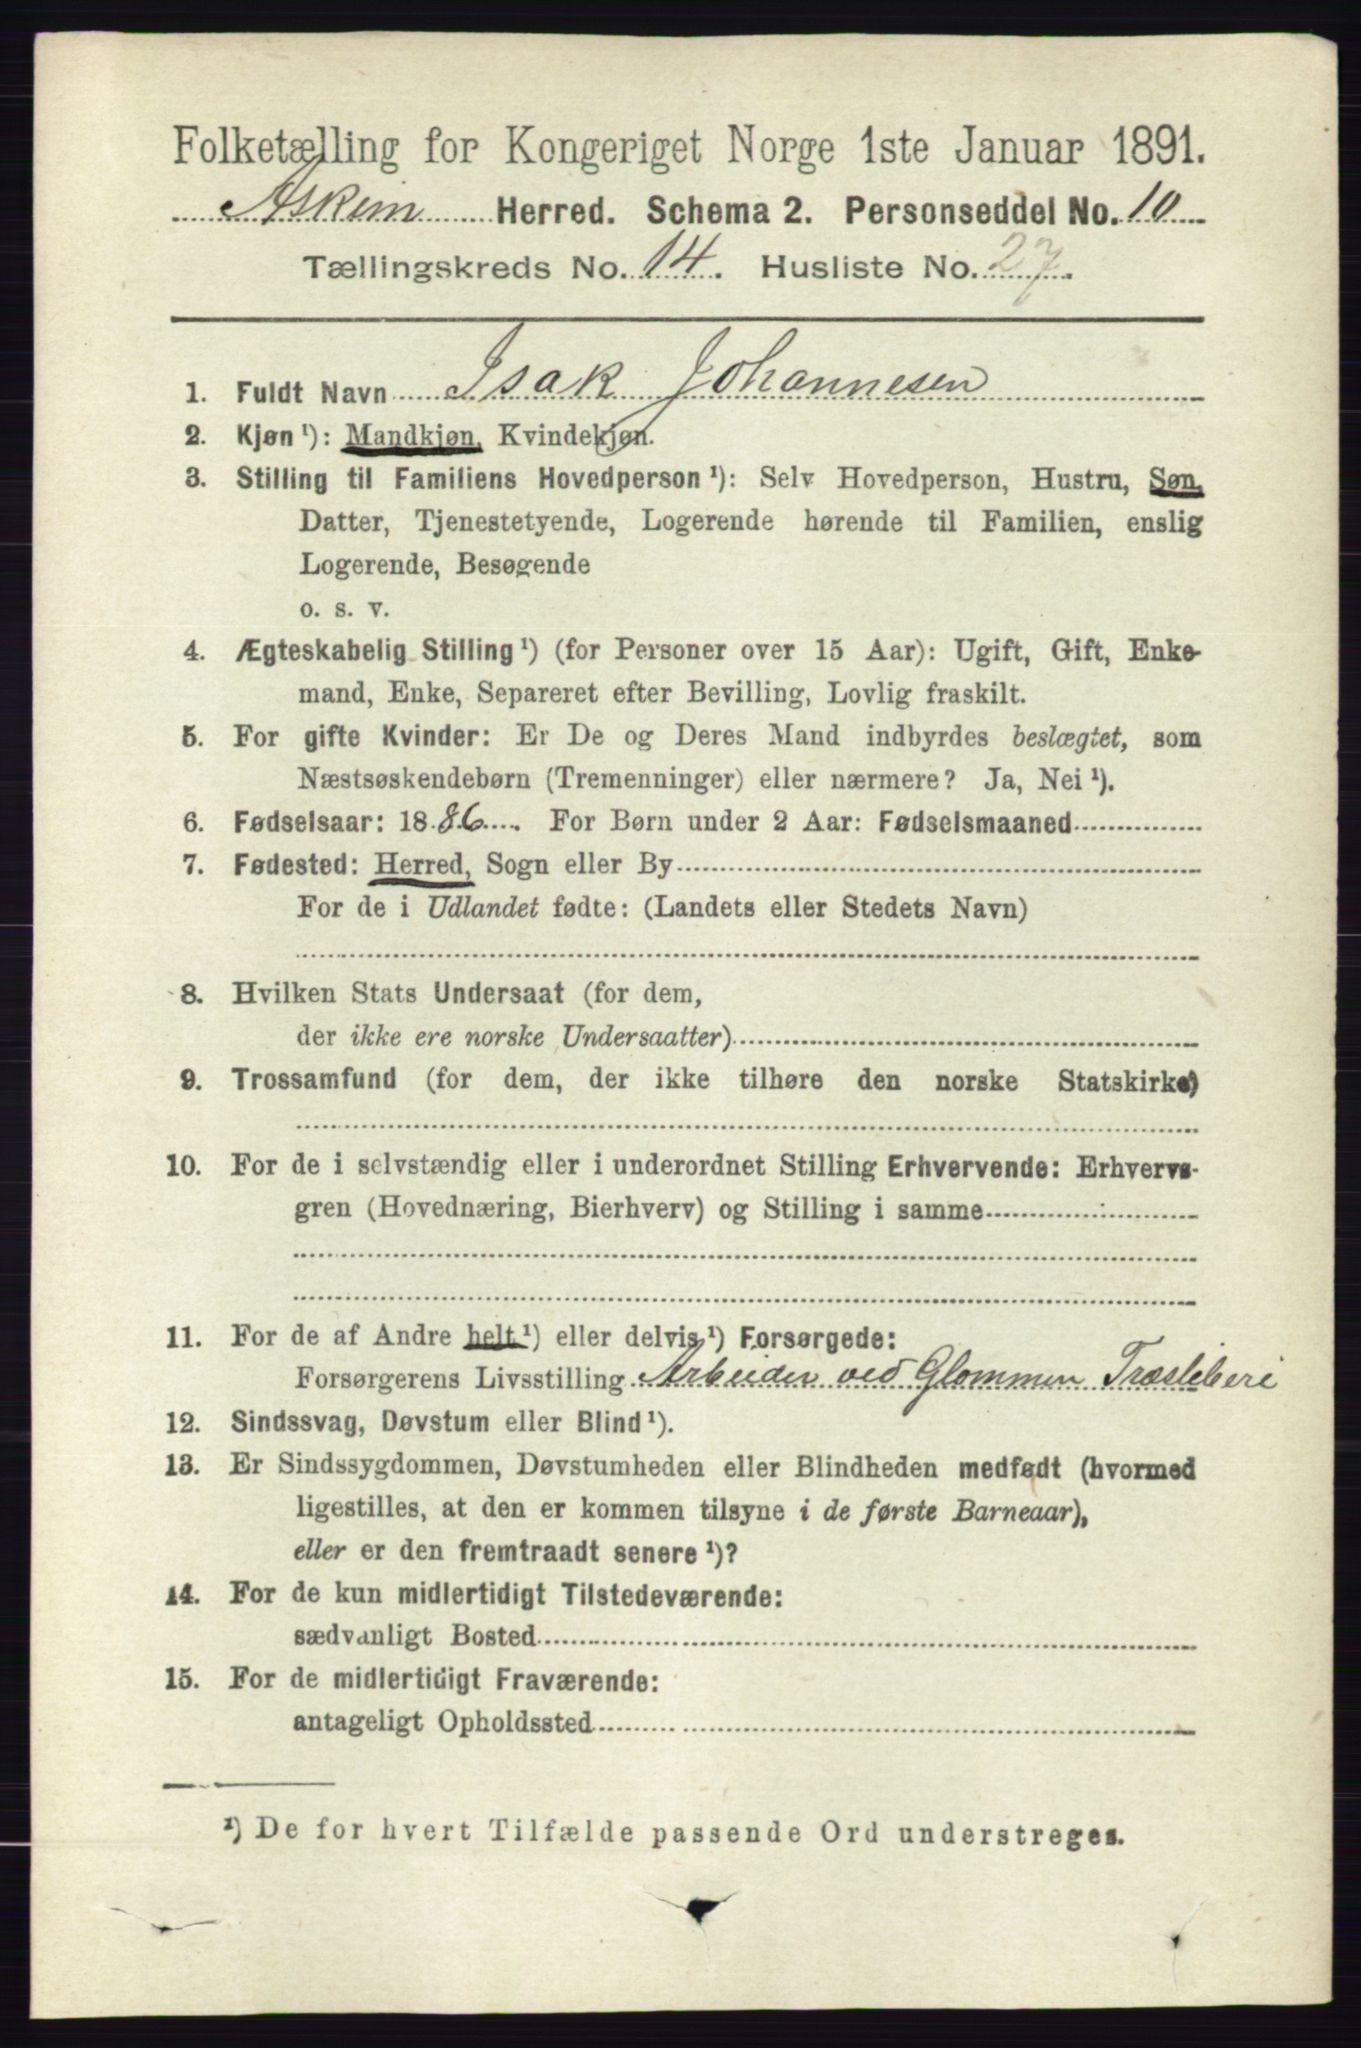 Folketælling for Kongeriget Norge 1ste Januar 1891.
Askim Herred. Schema 2. Personseddel No. 10
Tællingskreds No. 14. Husliste No. 27.
1. Fuldt Navn Isak Johannesen
2. Kjøn ¹): Mandkjøn, Kvindekjøn.
3. Stilling til Familiens Hovedperson ¹): Selv Hovedperson, Hustru, Søn,
Datter, Tjenestetyende, Logerende hørende til Familien, enslig
Logerende, Besøgende
o. s. v.
4. Ægteskabelig Stilling ¹) (for Personer over 15 Aar): Ugift, Gift, Enke-
mand, Enke, Separeret efter Bevilling, Lovlig fraskilt.
5. For gifte Kvinder: Er De og Deres Mand indbyrdes beslægtet, som
Næstsøskendebørn (Tremenninger) eller nærmere? Ja, Nei ¹).
6. Fødselsaar: 1886. For Børn under 2 Aar: Fødselsmaaned
7. Fødested: Herred, Sogn eller By
For de i Udlandet fødte: (Landets eller Stedets Navn)
8. Hvilken Stats Undersaat (for dem,
der ikke ere norske Undersaatter)
9. Trossamfund (for dem, der ikke tilhøre den norske Statskirke)
10. For de i selvstændig eller i underordnet Stilling Erhvervende: Erhvervs-
gren (Hovednæring, Bierhverv) og Stilling i samme
11. For de af Andre helt ¹) eller delvis ¹) Forsørgede:
Forsørgerens Livsstilling Arbeider ved Glommen Træsliberi
12. Sindssvag, Døvstum eller Blind ¹).
13. Er Sindssygdommen, Døvstumheden eller Blindheden medfødt (hvormed
ligestilles, at den er kommen tilsyne i de første Barneaar),
eller er den fremtraadt senere ¹)?
14. For de kun midlertidigt Tilstedeværende:
sædvanligt Bosted
15. For de midlertidigt Fraværende:
antageligt Opholdssted
¹) De for hvert Tilfælde passende Ord understreges.